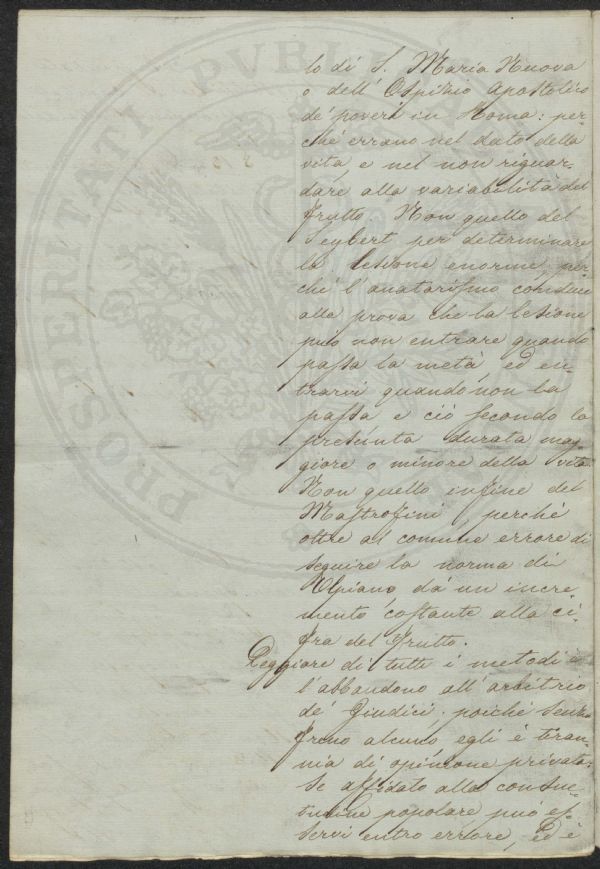 PROSPERITATI PVBLICAE
lo di S. Maria Nuova
o dell' Ospizio Apostolico
de' poveri in Roma: per-
ché errano nel dato della
vita, e nel non riguar-
dare alla variabilità del
frutto. Non quello del
Seybert per determinare
la lesione enorme, per-
ché l'anatocismo conduce
alla prova che la lesione
può non entrare quando
passa la metà, ed en-
trarvi quando non la
passa e ciò secondo la
presunta durata mag-
giore o minore della vita.
Non quello infine del
Mastrofini, perché
oltre al comune errore di
seguire la norma di
Ulpiano, dà un incre-
mento costante alla ci-
fra del frutto.
Peggiore di tutti i metodi è
l'abbandono all'arbitrio
de' Giudici: poiché senza
freno alcuno egli è tiran-
nia di opinione privata:
se affidato alla consue-
tudine popolare può es-
servi entro errore, ed è